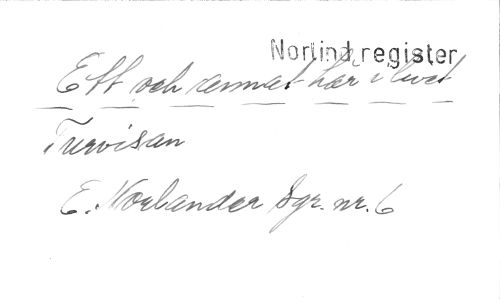 Norlind, register
Ett och annat här i livet
Turvisan
E. Norlander Sgr. nr. 6